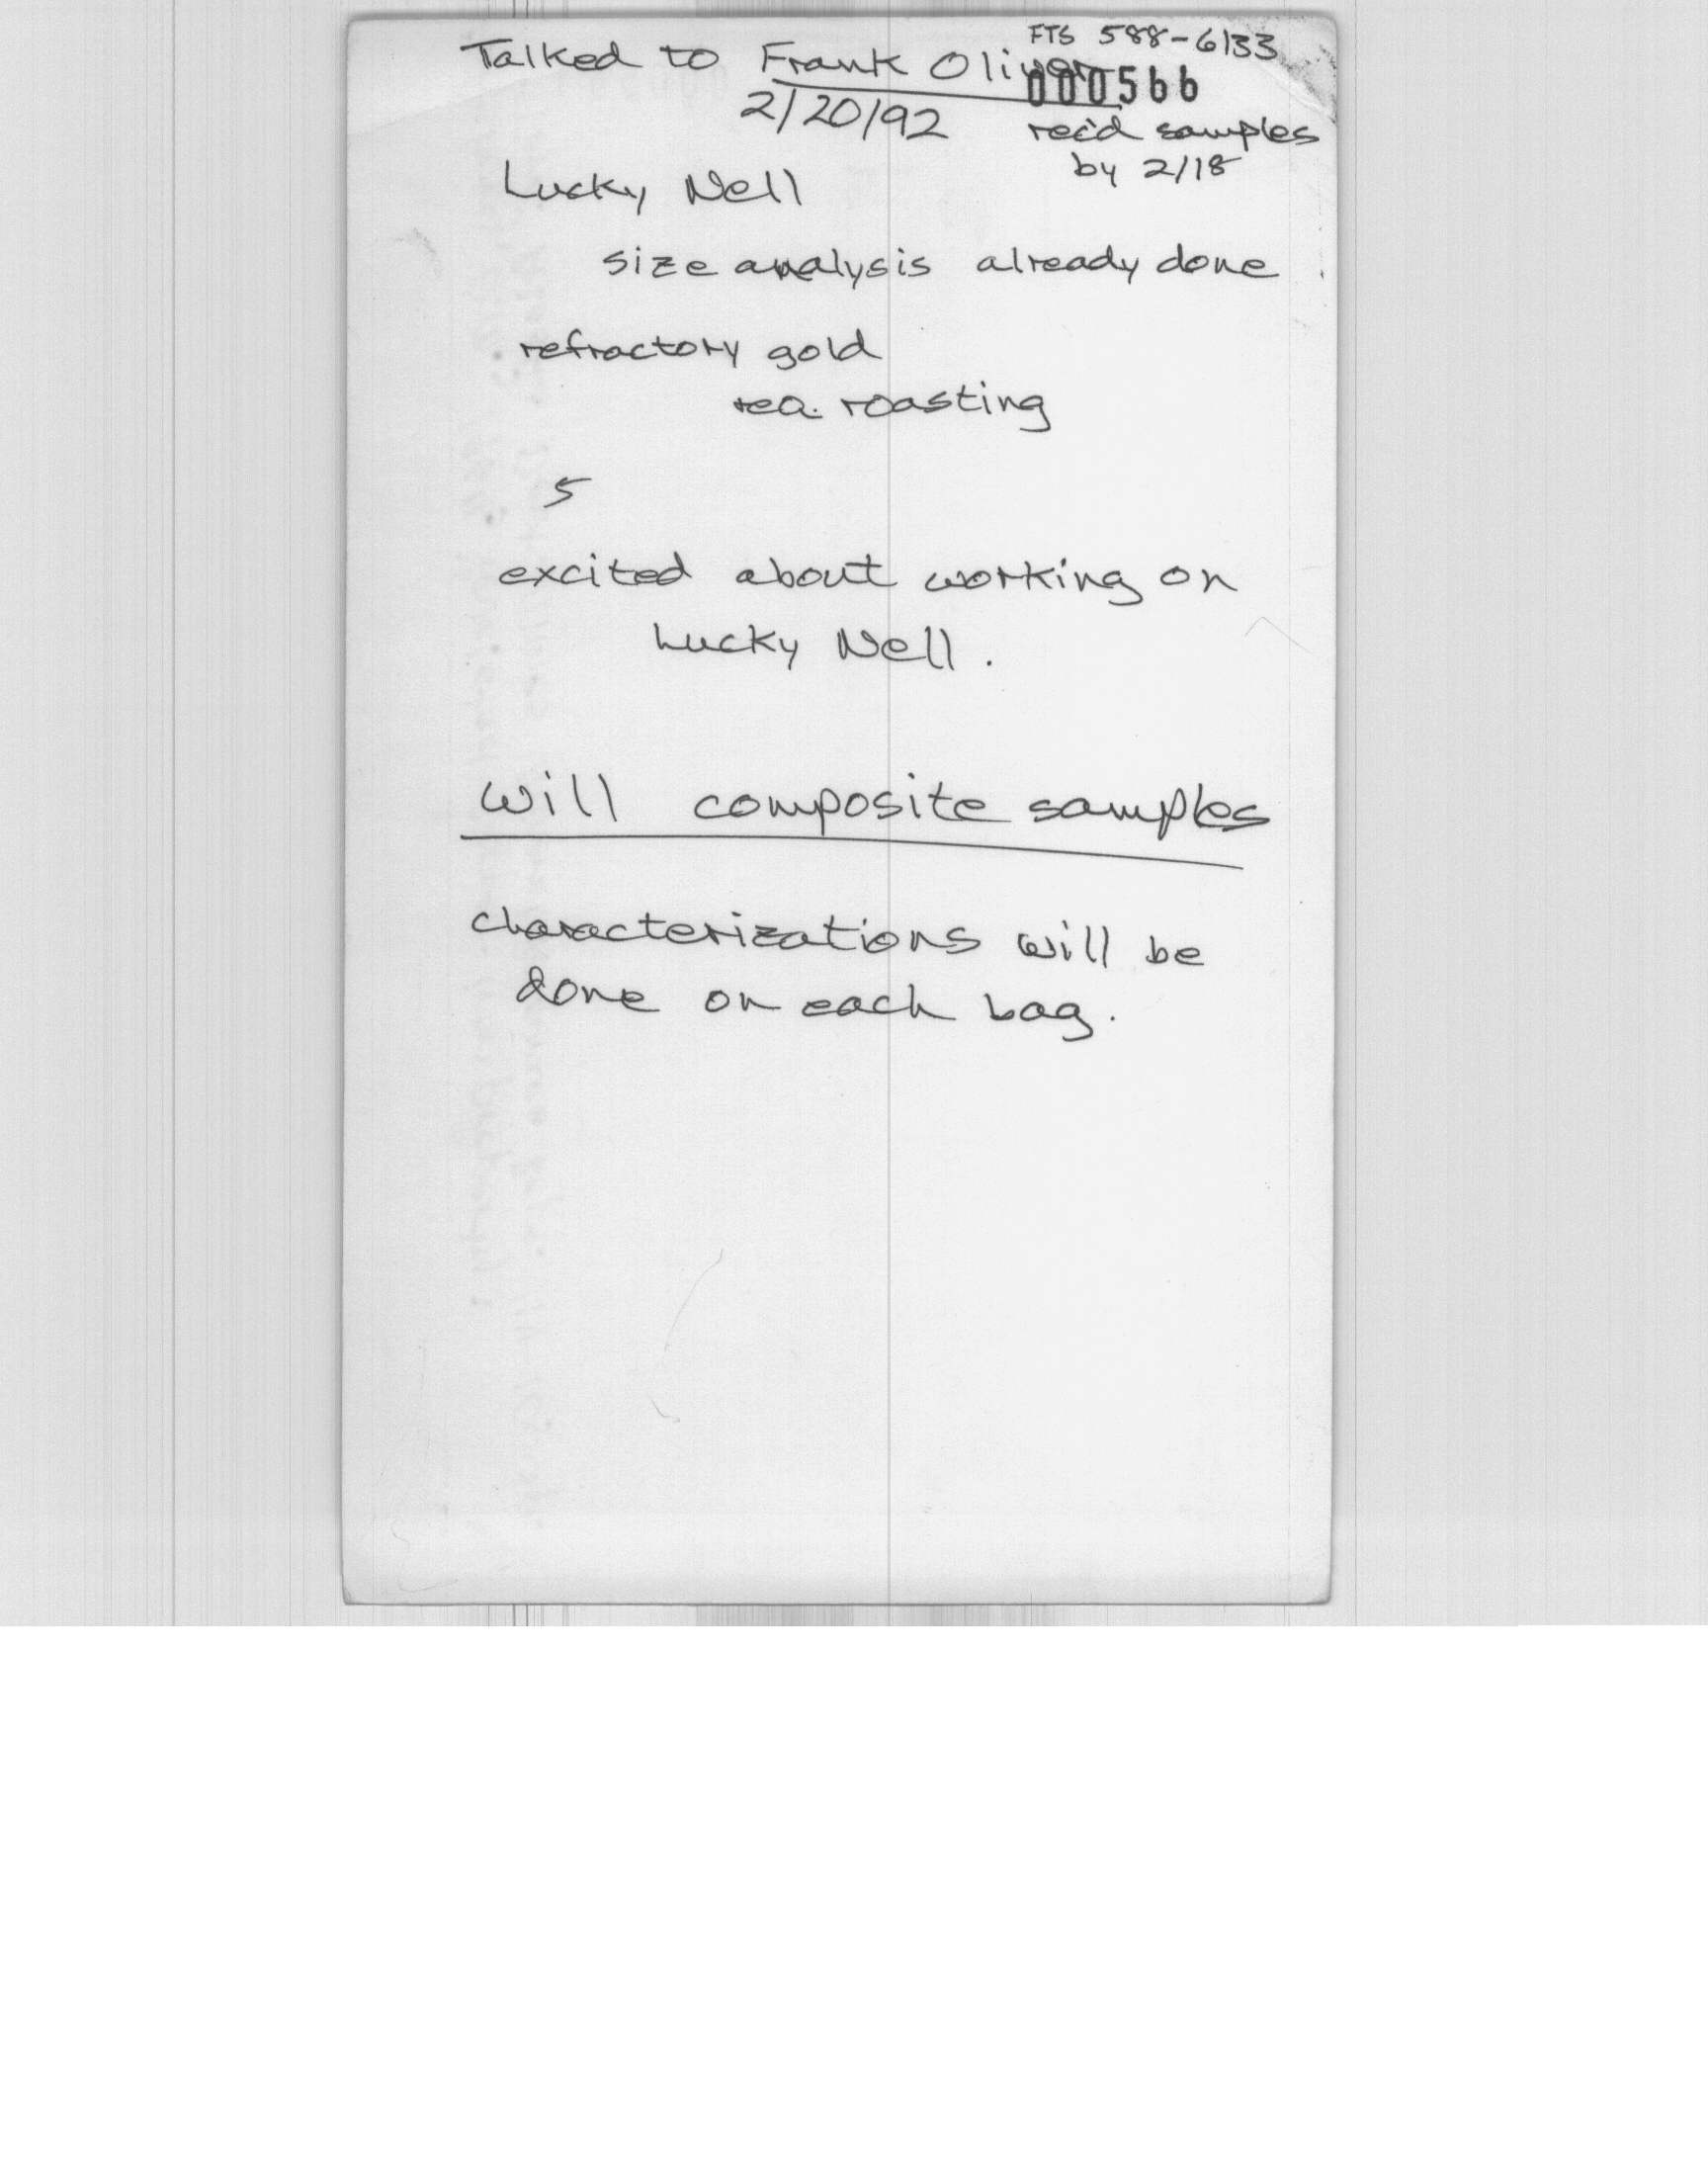 FTS 588-6133
Talked to Frank Oliver
000566
2/20/92
rec'd samples
by 2/18
Lucky Nell
size analysis already done
refractory gold
req. roasting
5
excited about working on
Lucky Nell.
will composite samples
characterizations will be
done on each bag.